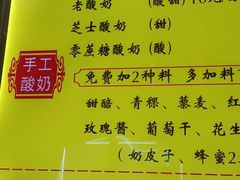 老酸奶 (酸甜) 10元
芝士酸奶 (甜)
零蔗糖酸奶 (酸)
手工
酸奶
免费加2种料 多加料
甜醅、青稞、藜麦、红
玫瑰酱、葡萄干、花生
(奶皮子、蜂蜜2